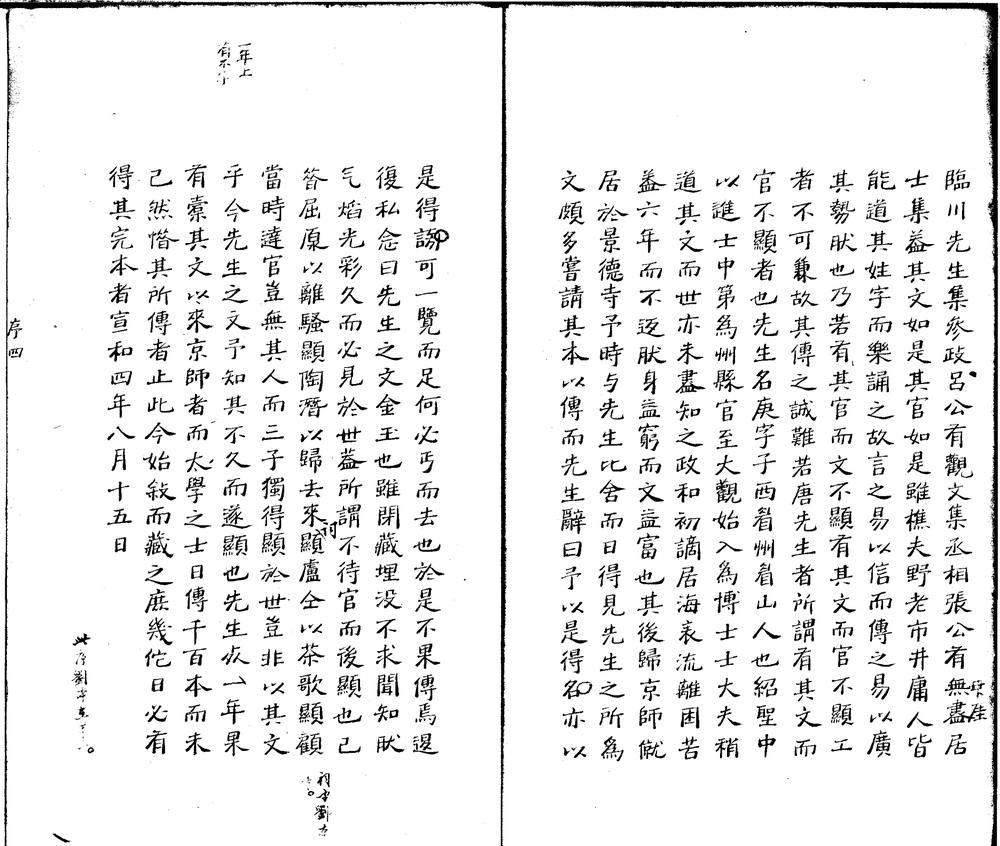 臨川先生集參政呂公有觀文集丞相張公有無盡居
士集葢其文如是其官如是雖樵夫野老市井庸人皆
能道其姓字而樂誦之故言之易以信而傳之易以廣
其勢肰也乃若有其官而文不顯有其文而官不顯工
者不可兼故其傳之誠難若唐先生者所謂有其文而
官不顯者也先生名庚字子西眉州眉山人也紹聖中
以進士中第為州縣官至大觀始入為博士士大夫稍
道其文而世亦未盡知之政和初謫居海表流離困苦
葢六年而不返肰身益窮而文益富也其後歸京師僦
居於景德寺予時与先生比舍而日得見先生之所為
文頗多嘗請其本以傳而先生辭曰予以是得名亦以
是得謗可一覽而足何必丐而去也於是不果傳焉退
復私念曰先生之文金玉也雖閉藏埋没不求聞知肰
气焰光彩久而必見於世葢所謂不待官而後顯也已
昝屈原以離騷顯陶潛以歸去來詞顯盧仝以茶歌顯顧
當時達官豈無其人而三子獨得顯於世豈非以其文
乎今先生之文予知其不久而遂顯也先生㱔一年果
有橐其文以來京師者而太學之士日傳千百本而未
已然惜其所傳者止此今始敍而藏之庶幾佗日必有
得其完本者宣和四年八月十五日
一年上
有不字
此序劉本在
詞字劉本
序四